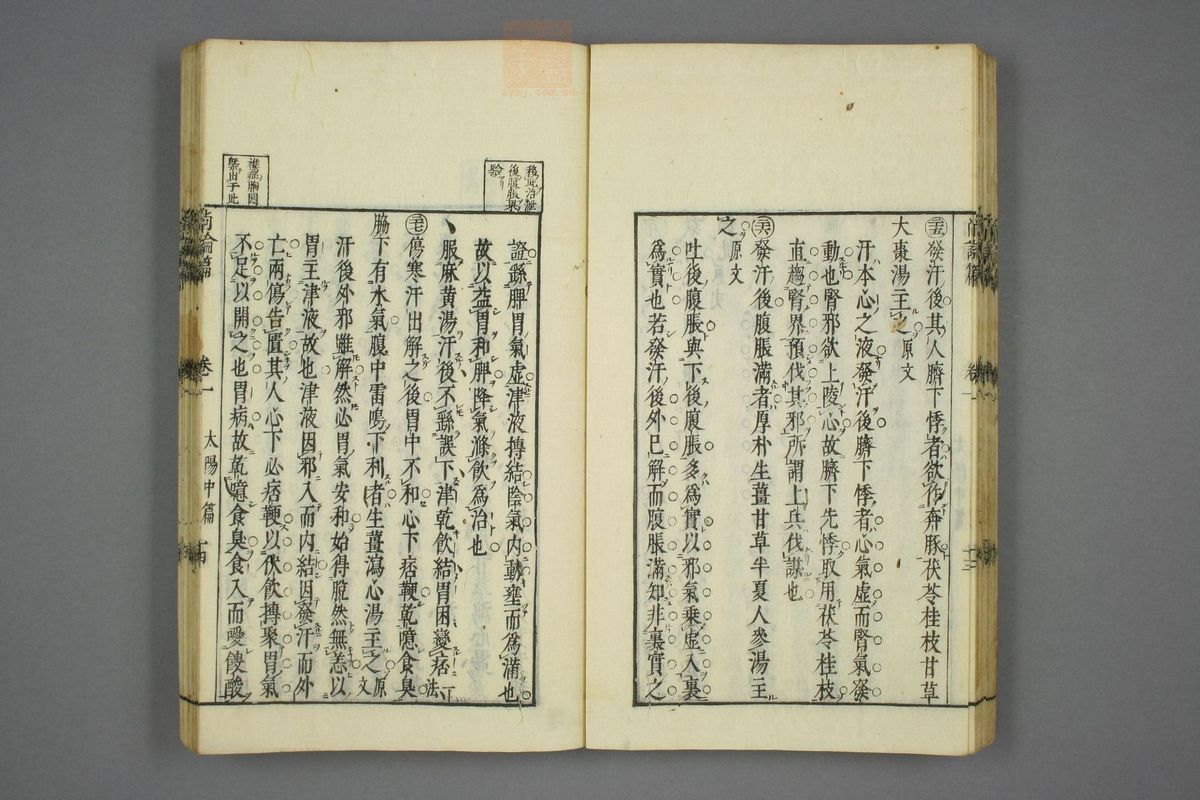 尚論篇 卷一 十三
㊄發汗後其人臍下悸者欲作奔豚茯苓桂枝甘草
大棗湯主之原文
汗本心之液發汗後臍下悸者心氣虛而腎氣發
動也腎邪欲上陵心故臍下先悸取用茯苓桂枝
直趨腎界預伐其邪所謂上兵伐謀也
發汗後腹脹滿者厚朴生薑甘草半夏人參湯主
之原文
吐後腹脹與下後腹脹多爲實以邪氣乘虛入裏
爲實也若發汗後外已解而腹脹滿知非裏實之
移此治泄
後腹脹果
驗
證繇脾胃氣虛津液摶結陰氣内動壅而爲滿也
故以益胃和脾降氣滌飲爲治也
服麻黃湯汗後不繇誤下津乾飲結胃困變痞一法
傷寒汗出解之後胃中不和心下痞鞕乾噫食臭
脇下有水氣腹中雷鳴下利者生薑瀉心湯主之原文
汗後外邪雖解然必胃氣安和始得脫然無恙以
胃主津液故也津液因邪入而内結因發汗而外
亡兩傷告匱其人心下必痞鞕以伏飲摶聚胃氣
不足以開之也胃病故乾噫食臭食入而噯餿酸
胸悶
槩由于此
尚論篇 卷一 太陽中篇 十四